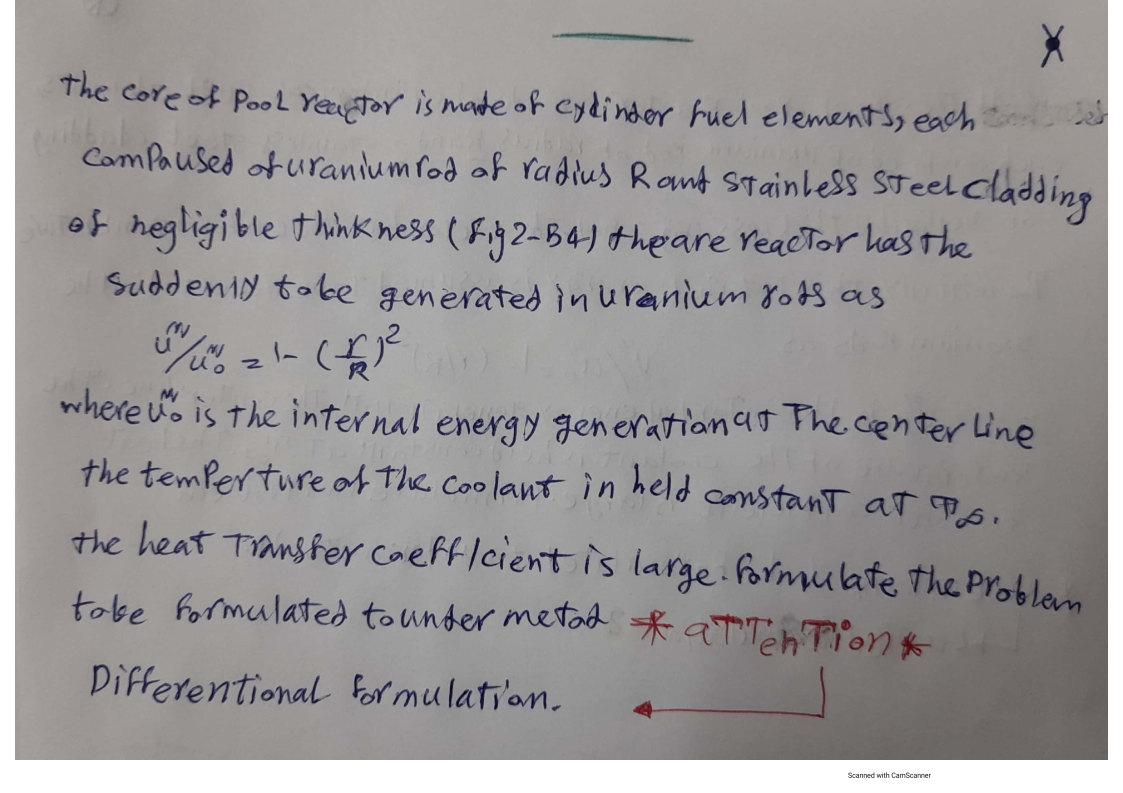 The core of Pool reactor is made of cylinder fuel elements, each
compaused of uranium rod of radius R and stainless steel cladding
of negligible thinkness (Fig 2-B4) the are reactor has the
suddenly to be generated in uranium rods as
u'''/u'''₀ = 1 - (r/R)²
where u'''₀ is the internal energy generation at The center Line
the temperture of The coolant in held constant at T∞.
the heat Transfer coefficient is large. formulate the Problem
to be formulated to under metod * aTTenTion *
Differentional formulation.
Scanned with CamScanner